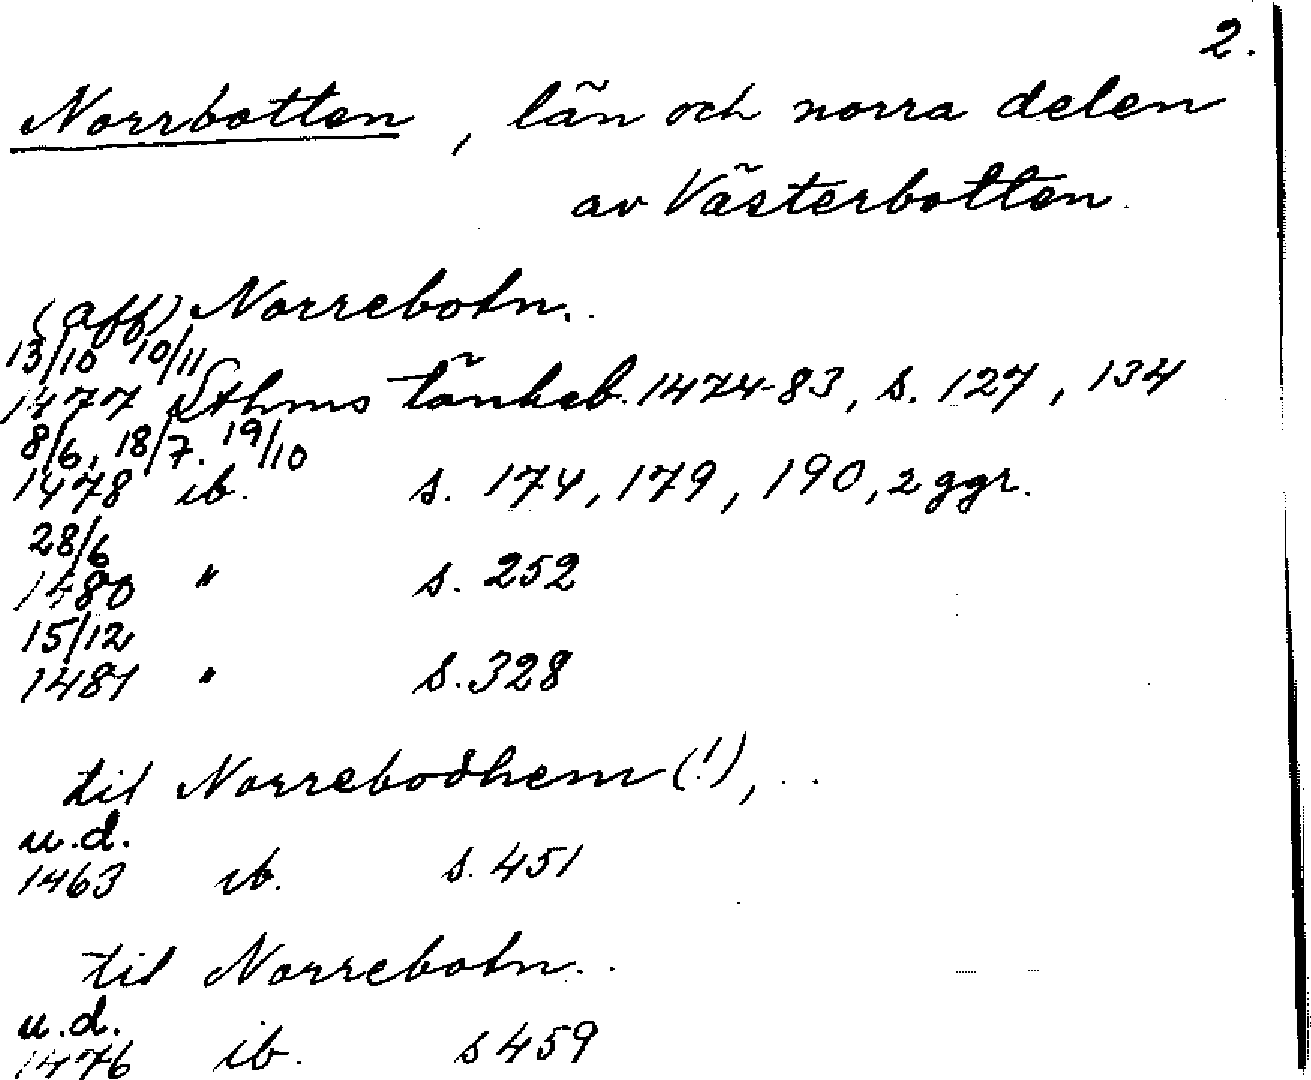 2.
Norrbotten, län och norra delen
av Västerbotten.
(aff) Norrebotn..
13/10 10/11
1477 Sthms tänkeb. 1474-83, s. 127, 134
8/6, 18/7. 19/10
1478 ib. s. 174, 179, 190, 2 ggr.
28/6
1480 " s. 252
15/12
1481 " s. 328
til Norrebodhem (!), ..
u.d.
1463 ib. s. 451
til Norrebotn..
u.d.
1476 ib. s 459